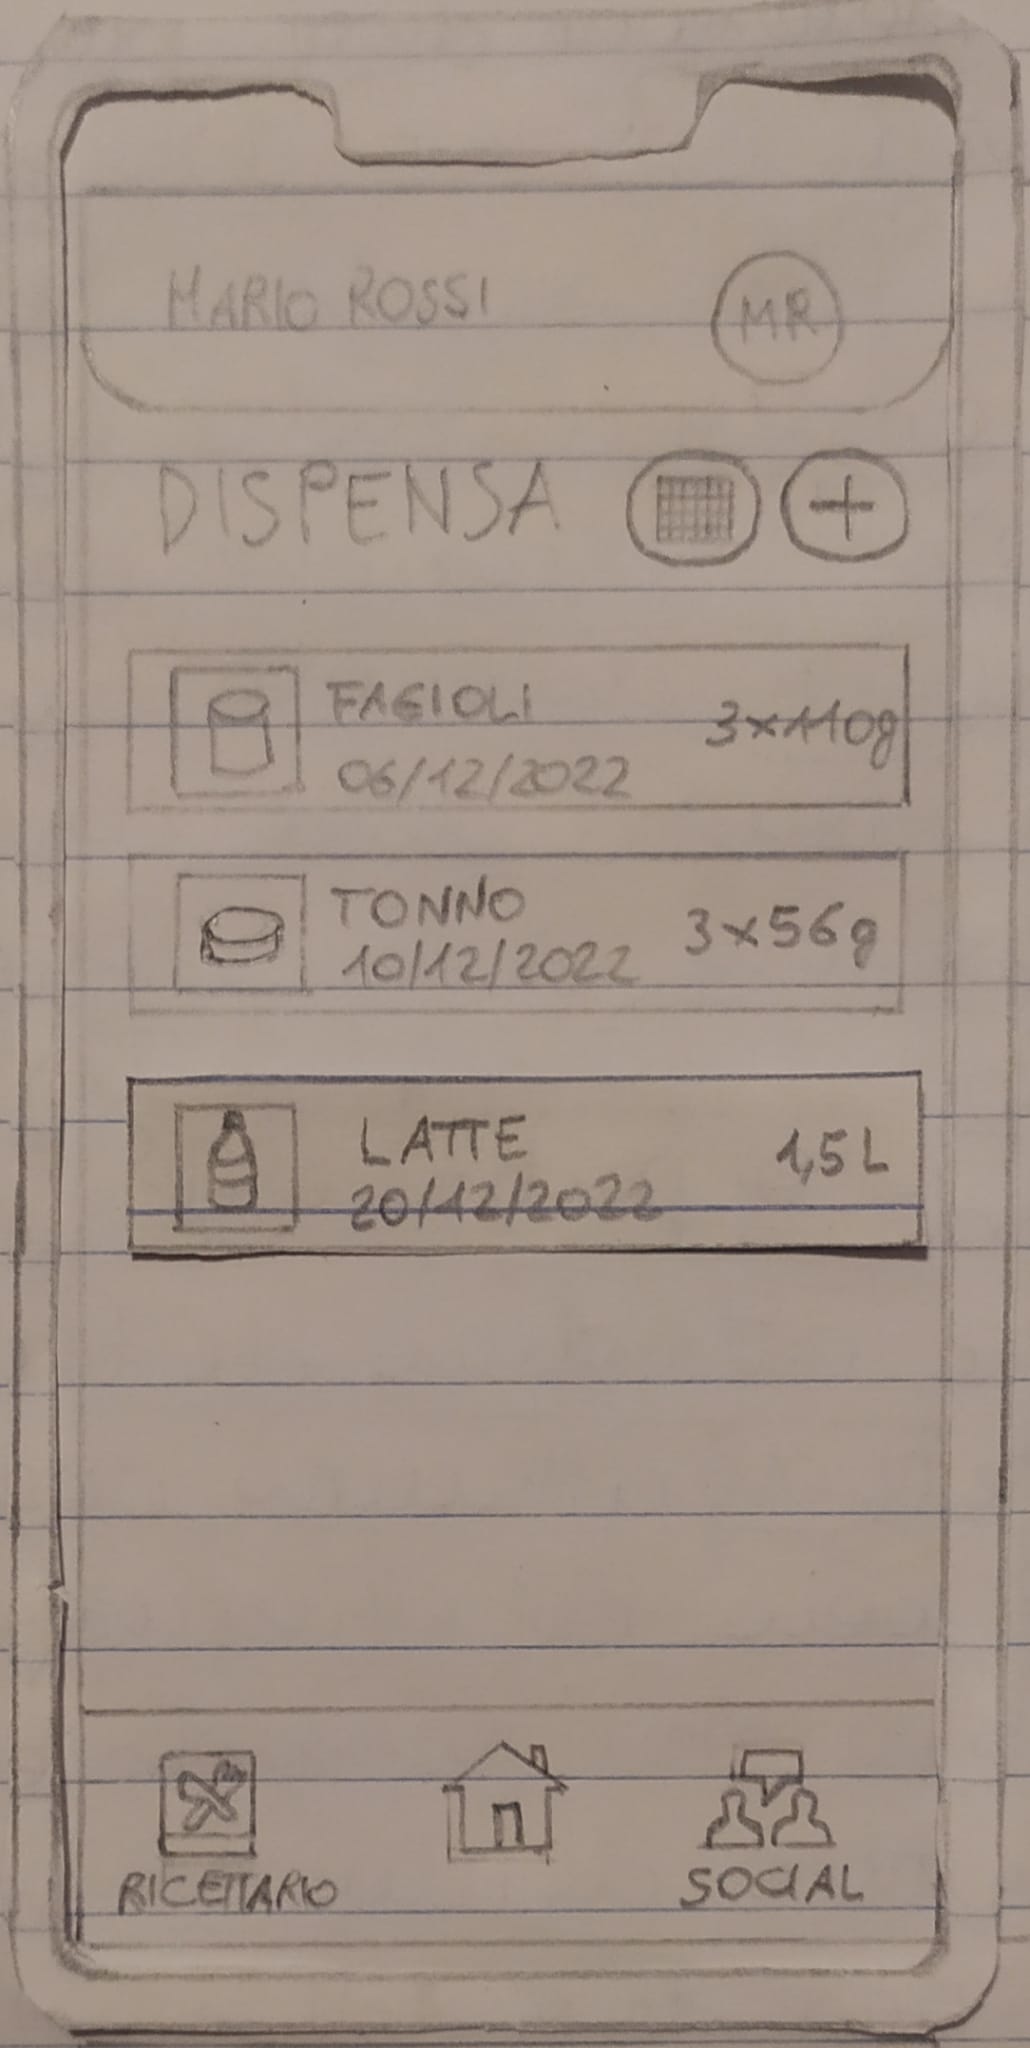 MARIO ROSSI
MR
DISPENSA
FAGIOLI
06/12/2022
3x110g
TONNO
10/12/2022
3x56g
LATTE
20/12/2022
1,5 L
RICETTARIO
SOCIAL